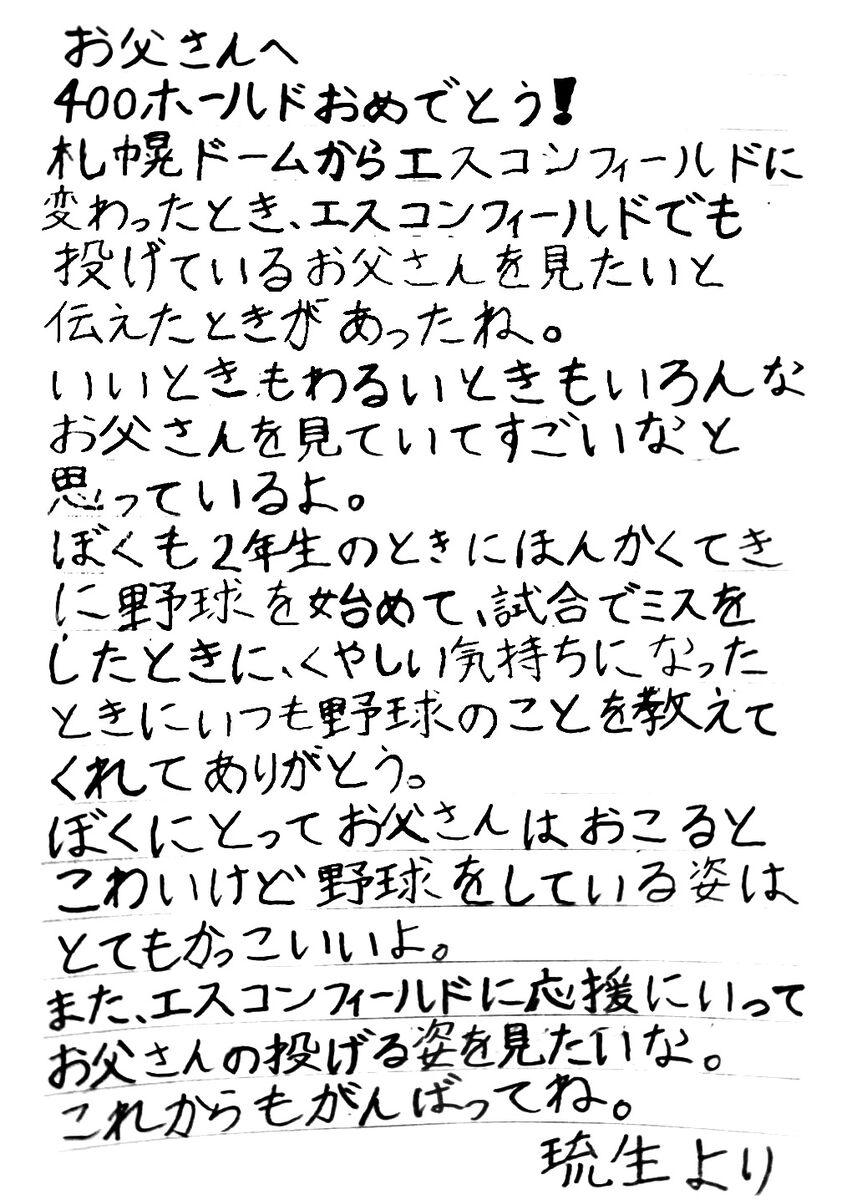 お父さんへ
400ホールドおめでとう!
札幌ドームからエスコンフィールドに
変わったとき、エスコンフィールドでも
投げているお父さんを見たいと
伝えたときがあったね。
いいときもわるいときもいろんな
お父さんを見ていてすごいなと
思っているよ。
ぼくも2年生のときにほんかくてき
に野球を始めて、試合でミスを
したときに、くやしい気持ちになった
ときにいつも野球のことを教えて
くれてありがとう。
ぼくにとってお父さんはおこると
こわいけど野球をしている姿は
とてもかっこいいよ。
また、エスコンフィールドに応援にいって
お父さんの投げる姿を見たいな。
これからもがんばってね。
琉生より